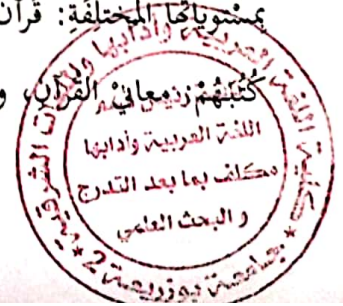 بِمُسْتوياتها المُختلفَةِ: قُرآن
كُتُبَهُمْ معاني القُرآنِ، و
كلية اللغة العربية وآدابها واللغات الشرقية
اللغة العربية وأدابها
مكلف بما بعد التدرج
و البحث العلمي
جامعة بوزريعة 2